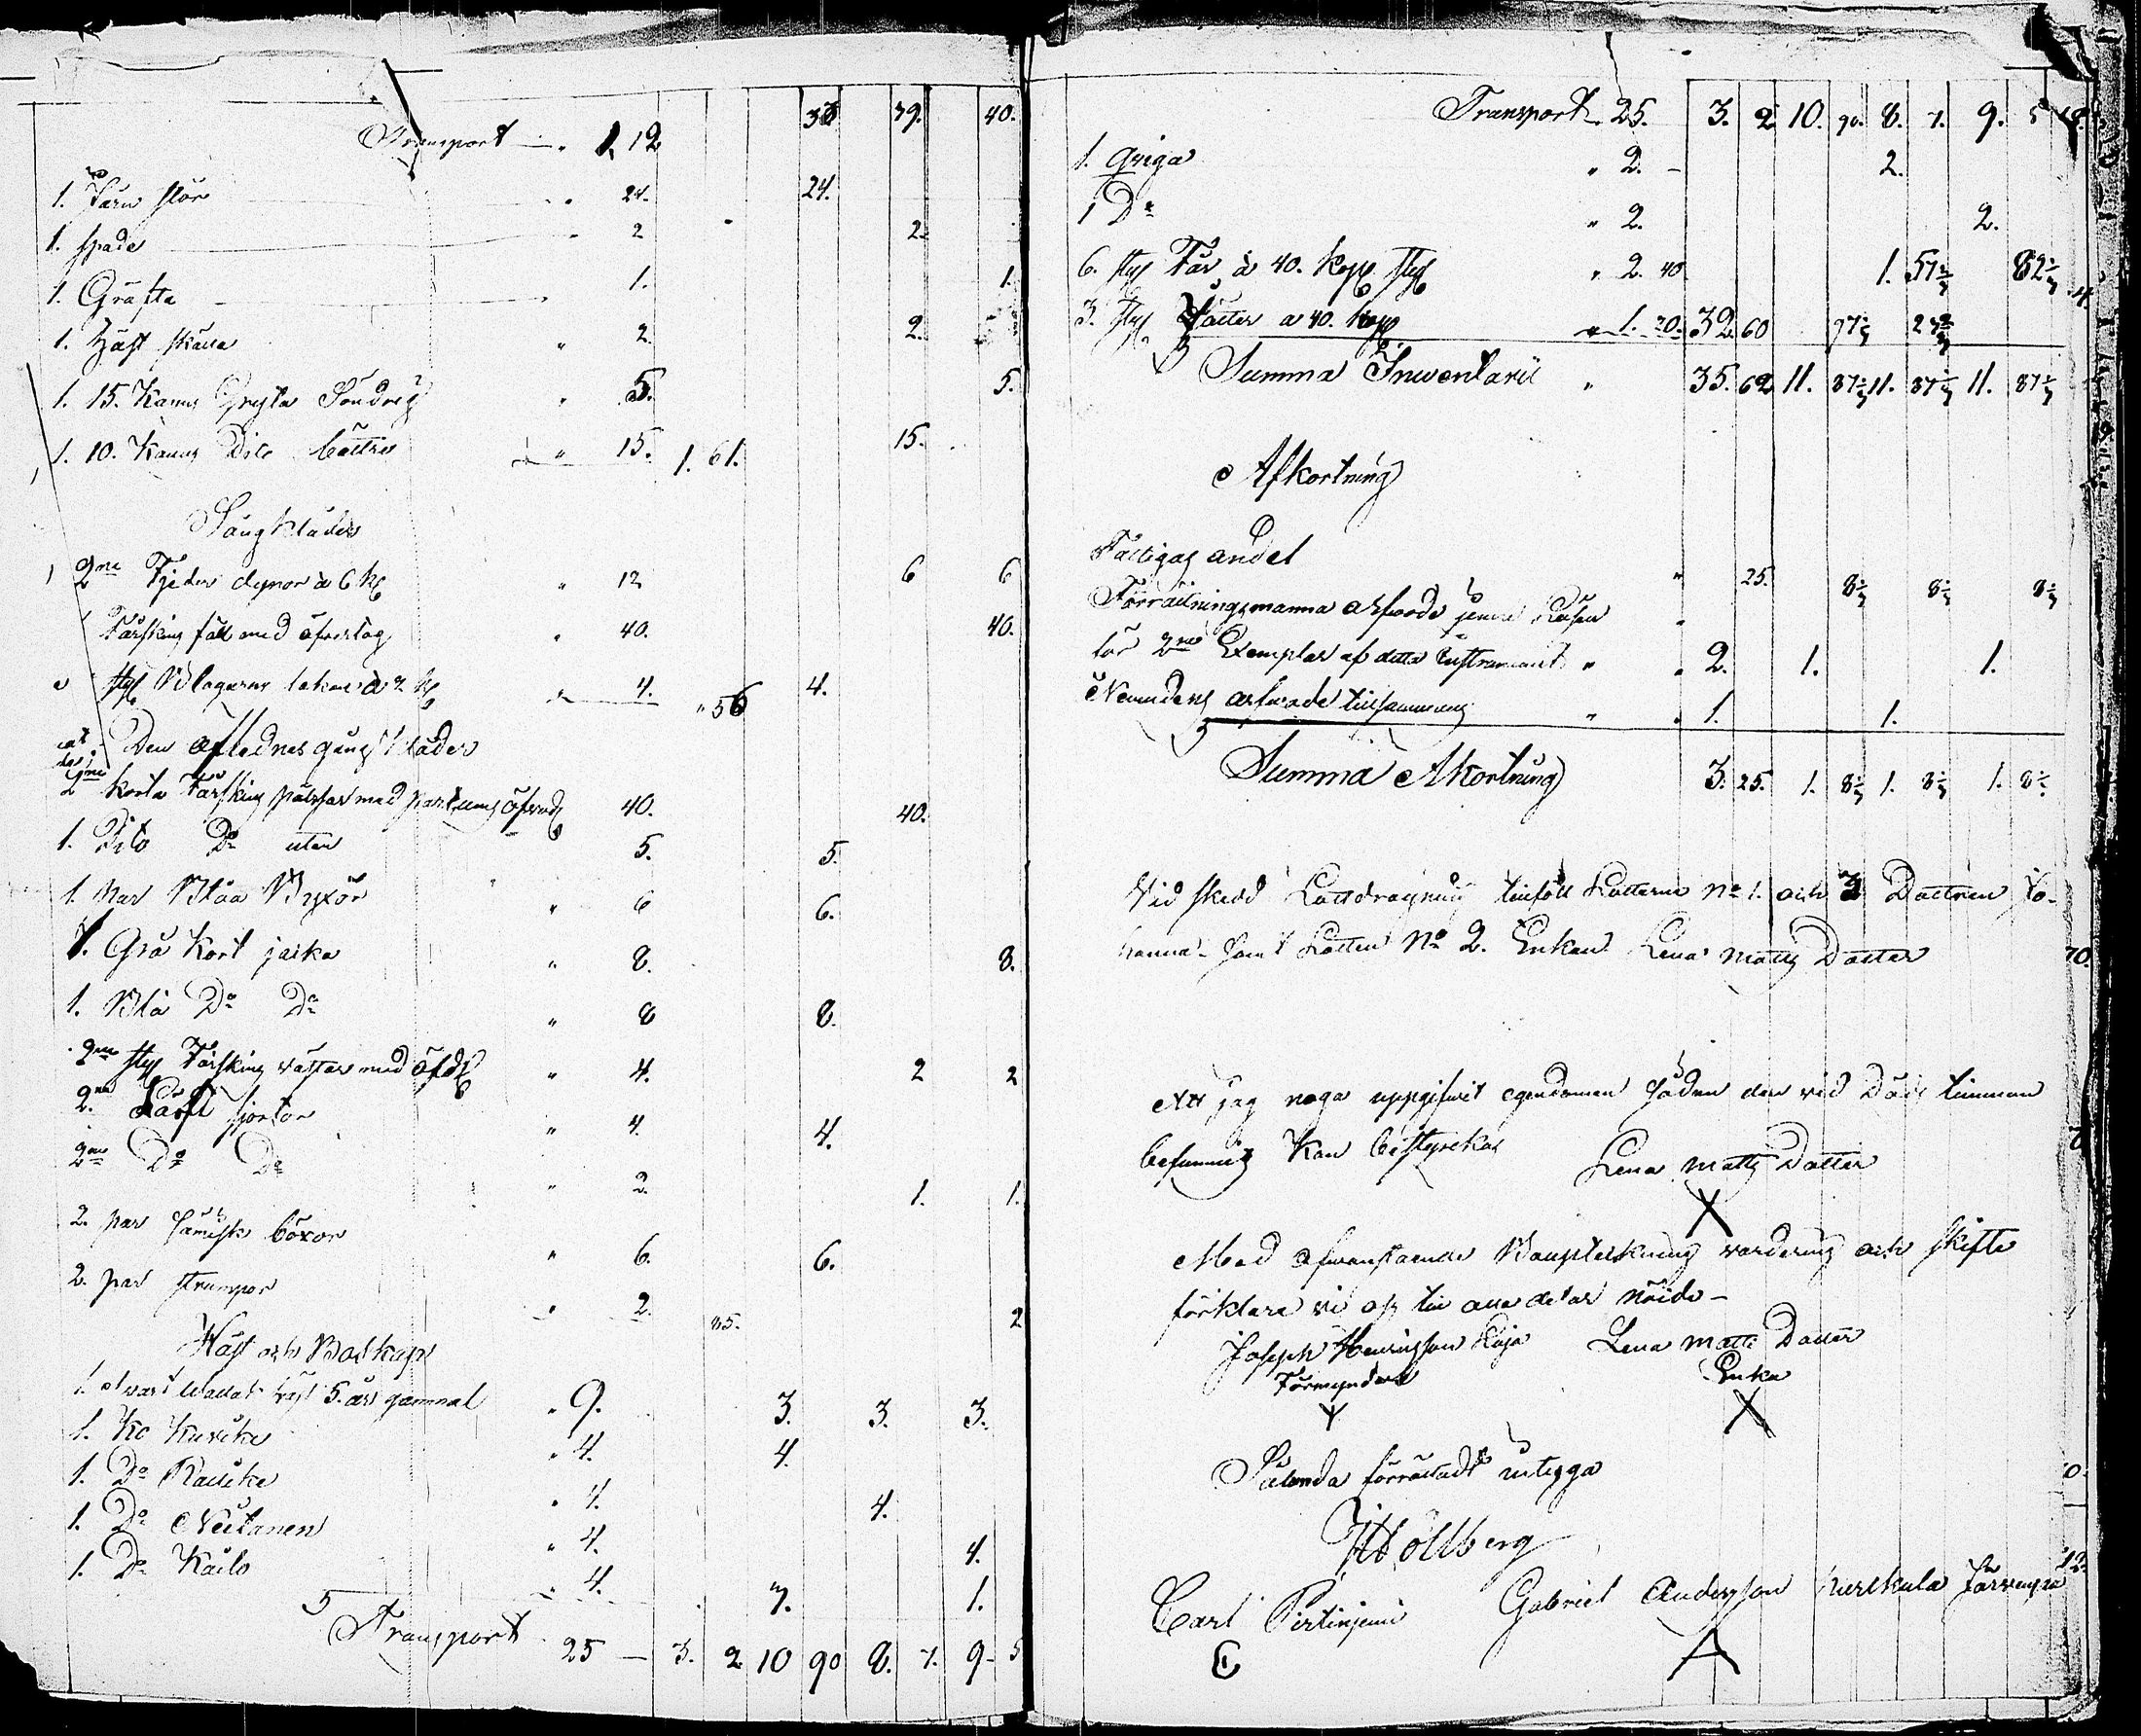 Transport " 1. 12 33 39. 40.
1. Järn stör " 24. 24.
1. Spade " 2 2.
1. Gräfta " 1. 1.
1. Häst skälla " 2. 2.
1. 15. Kanns Gryta Söndrig " 5. 5.
1. 10. Kanns Dito bättre " 15. 1. 61. 15.
Sängkläder
2ne Fjeder dynor à 6 k " 12 6 6
1 Fårskins fäll med öfverlag " 40. 40.
st Blagarns lakan à 2 k " 4. " 56 4.
Den Aflednes gångkläder
2ne korta Fårskins pälsar med öfvred 40. 40.
1. Dito Do utan " 5. 5.
1. Par Blåa Byxor " 6 6.
1. Grå Kort jacka " 8. 8.
1. Blå Do Do " 8 8.
2ne st Fårskins västar med öfd " 4. 2 2
2ne Lärft skjortor " 4. 4.
2ne Do Do " 2. 1. 1.
2. par sämisk böxor " 6. 6.
2. par strumpor " 2. 85. 2
Häst och Boskap
1. Svart Wallak häst 5. års gammal " 9. 3. 3. 3.
1. Ko Kurike " 4. 4.
1. Do Raiske " 4. 4.
1. Do Neitanen " 4. 4.
1. Do Kailo " 4. 7. 1.
Transport 25 — 3. 2 10 90 8. 7. 9 5
Transport 25. 3. 2 10. 90. 8. 7. 9. 5
1. Qviga " 2. - 2.
1 Do " 2. 2.
6. st Får à 40. kop st " 2. 40 1. 57 1/2 82 1/2
3. st à 40. kop " 1. 20. 32 60 97 1/2
Summa Inventarii " 35. 62 11. 87 1/2 11. 87 1/2 11. 87 1/2
Afkortning
Fattigas andel " 25. 8 1/3 8 1/3 8 1/3
Förrättningsmanna arfvode jemte
för 2ne Exemplar af detta Instrument " " 2. 1. 1.
Nemndens arfvode tillsammans " " 1. 1.
Summa Akortning 3. 25. 1. 8 1/3 1. 8 1/3 1. 8 1/3
Vid skedd Lottdragning tillföll Lotterne No 1. och 3 Dottren Jo-
hanna samt Lotten No 2. Enkan Lena Matts Dotter
Att jag noga uppgifvit egendomen sådan den vid Döds timman
befunnits Kan bestyrkas Lena Matts Dotter
X
Med ofvanstående Bouptekning värdering och skifte
förklara vi oss till alla delar nöjde -
Joseph Henriksson Koja Lena Matts Dotter
Förmyndare Enka
X
Sålunda förrättadt intyga
Hollberg
Carl Pirtiniemi Gabriel Andersson Kurckula Järvenpää